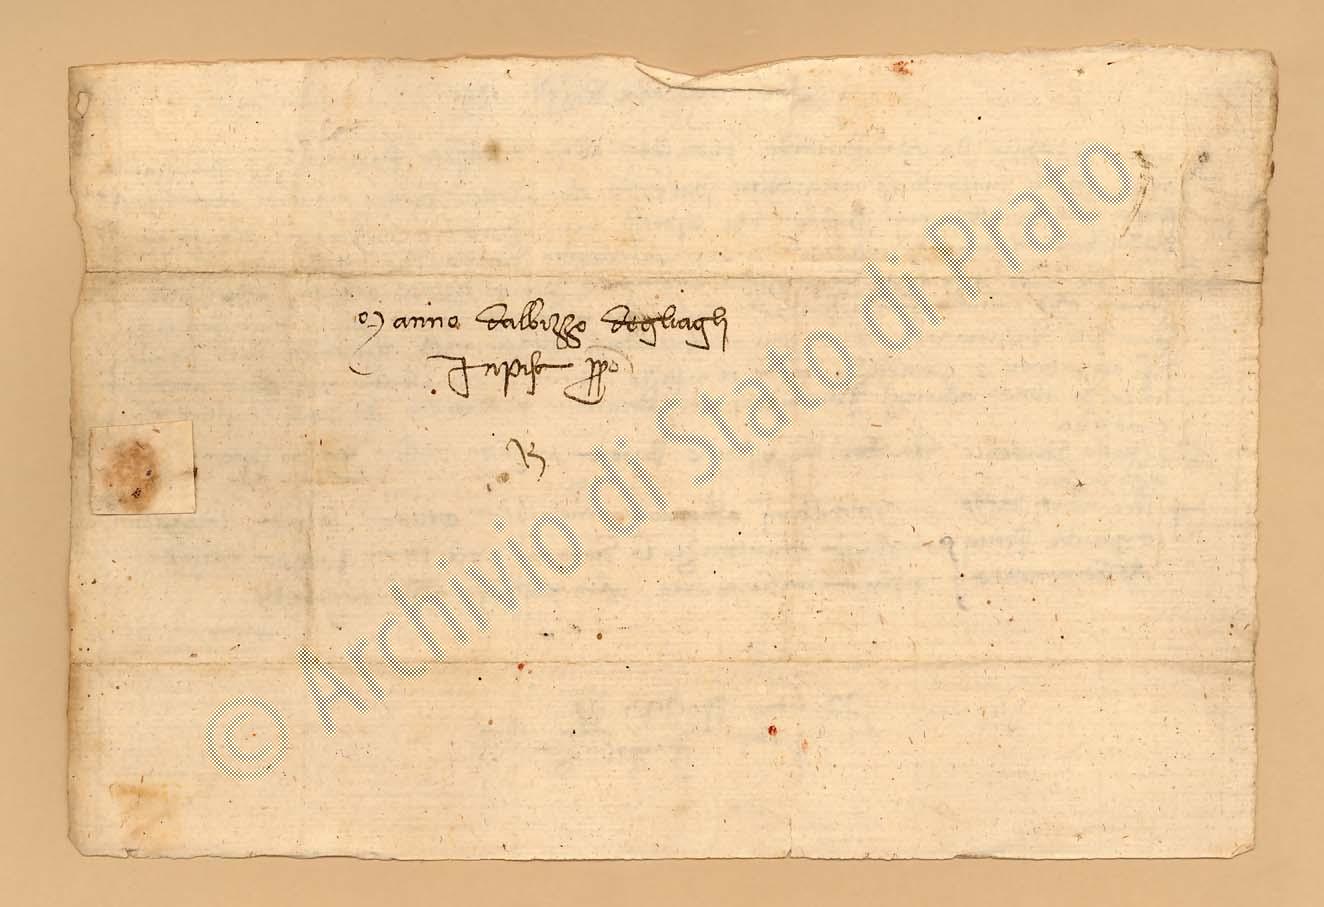 Manno dalbizzo degliagli
Inpisa propo
B
© Archivio di Stato di Prato